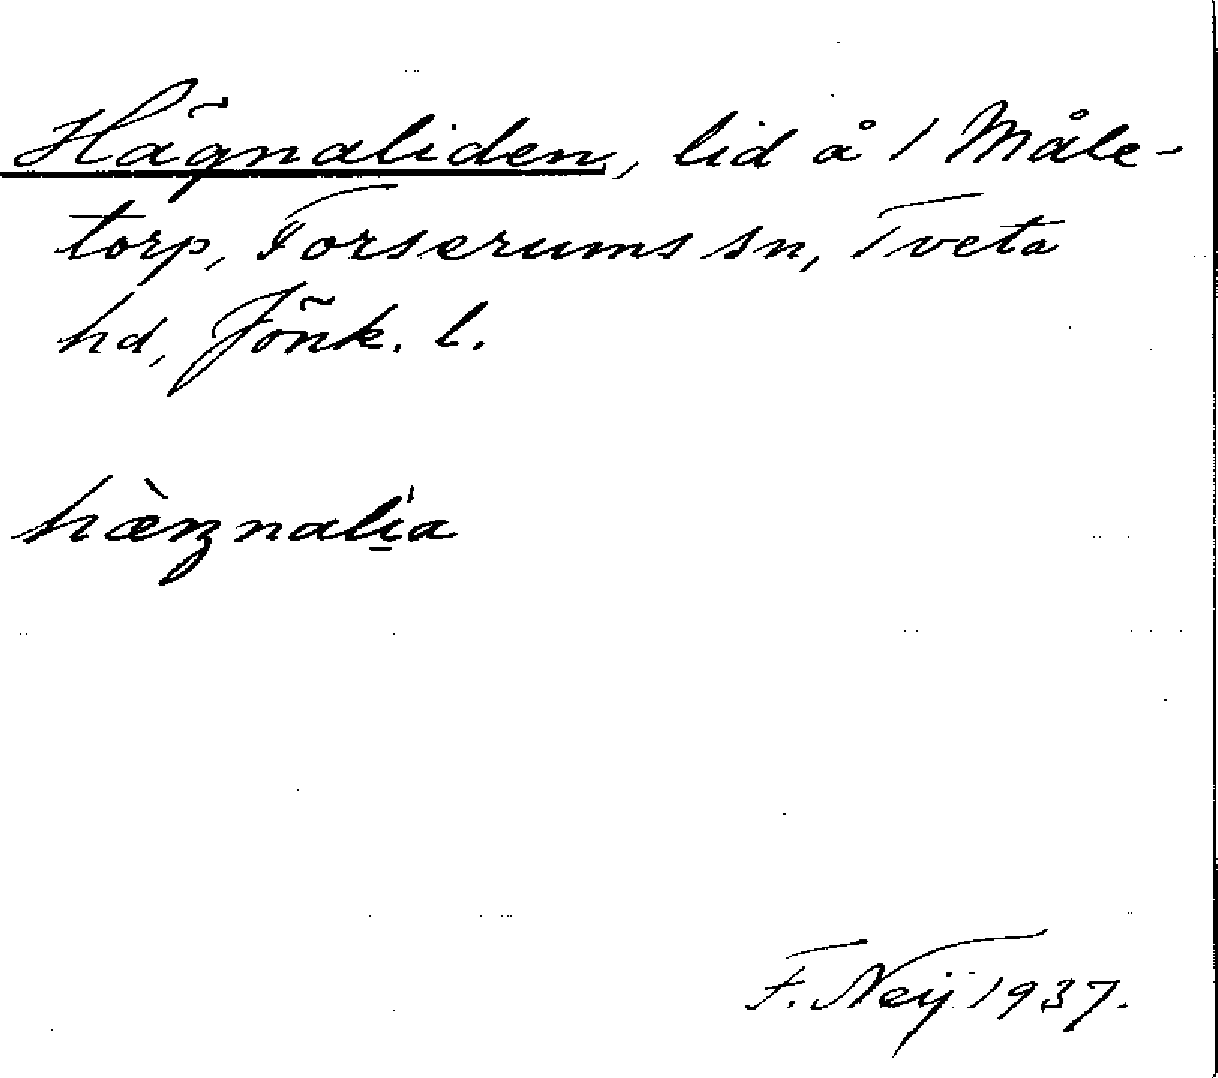 Hägnaliden, lid å 1 Måle-
torp, Forserums sn, Tveta
hd, Jönk. l.
hæ̀ŋnali̠a
F. Neij 1937.